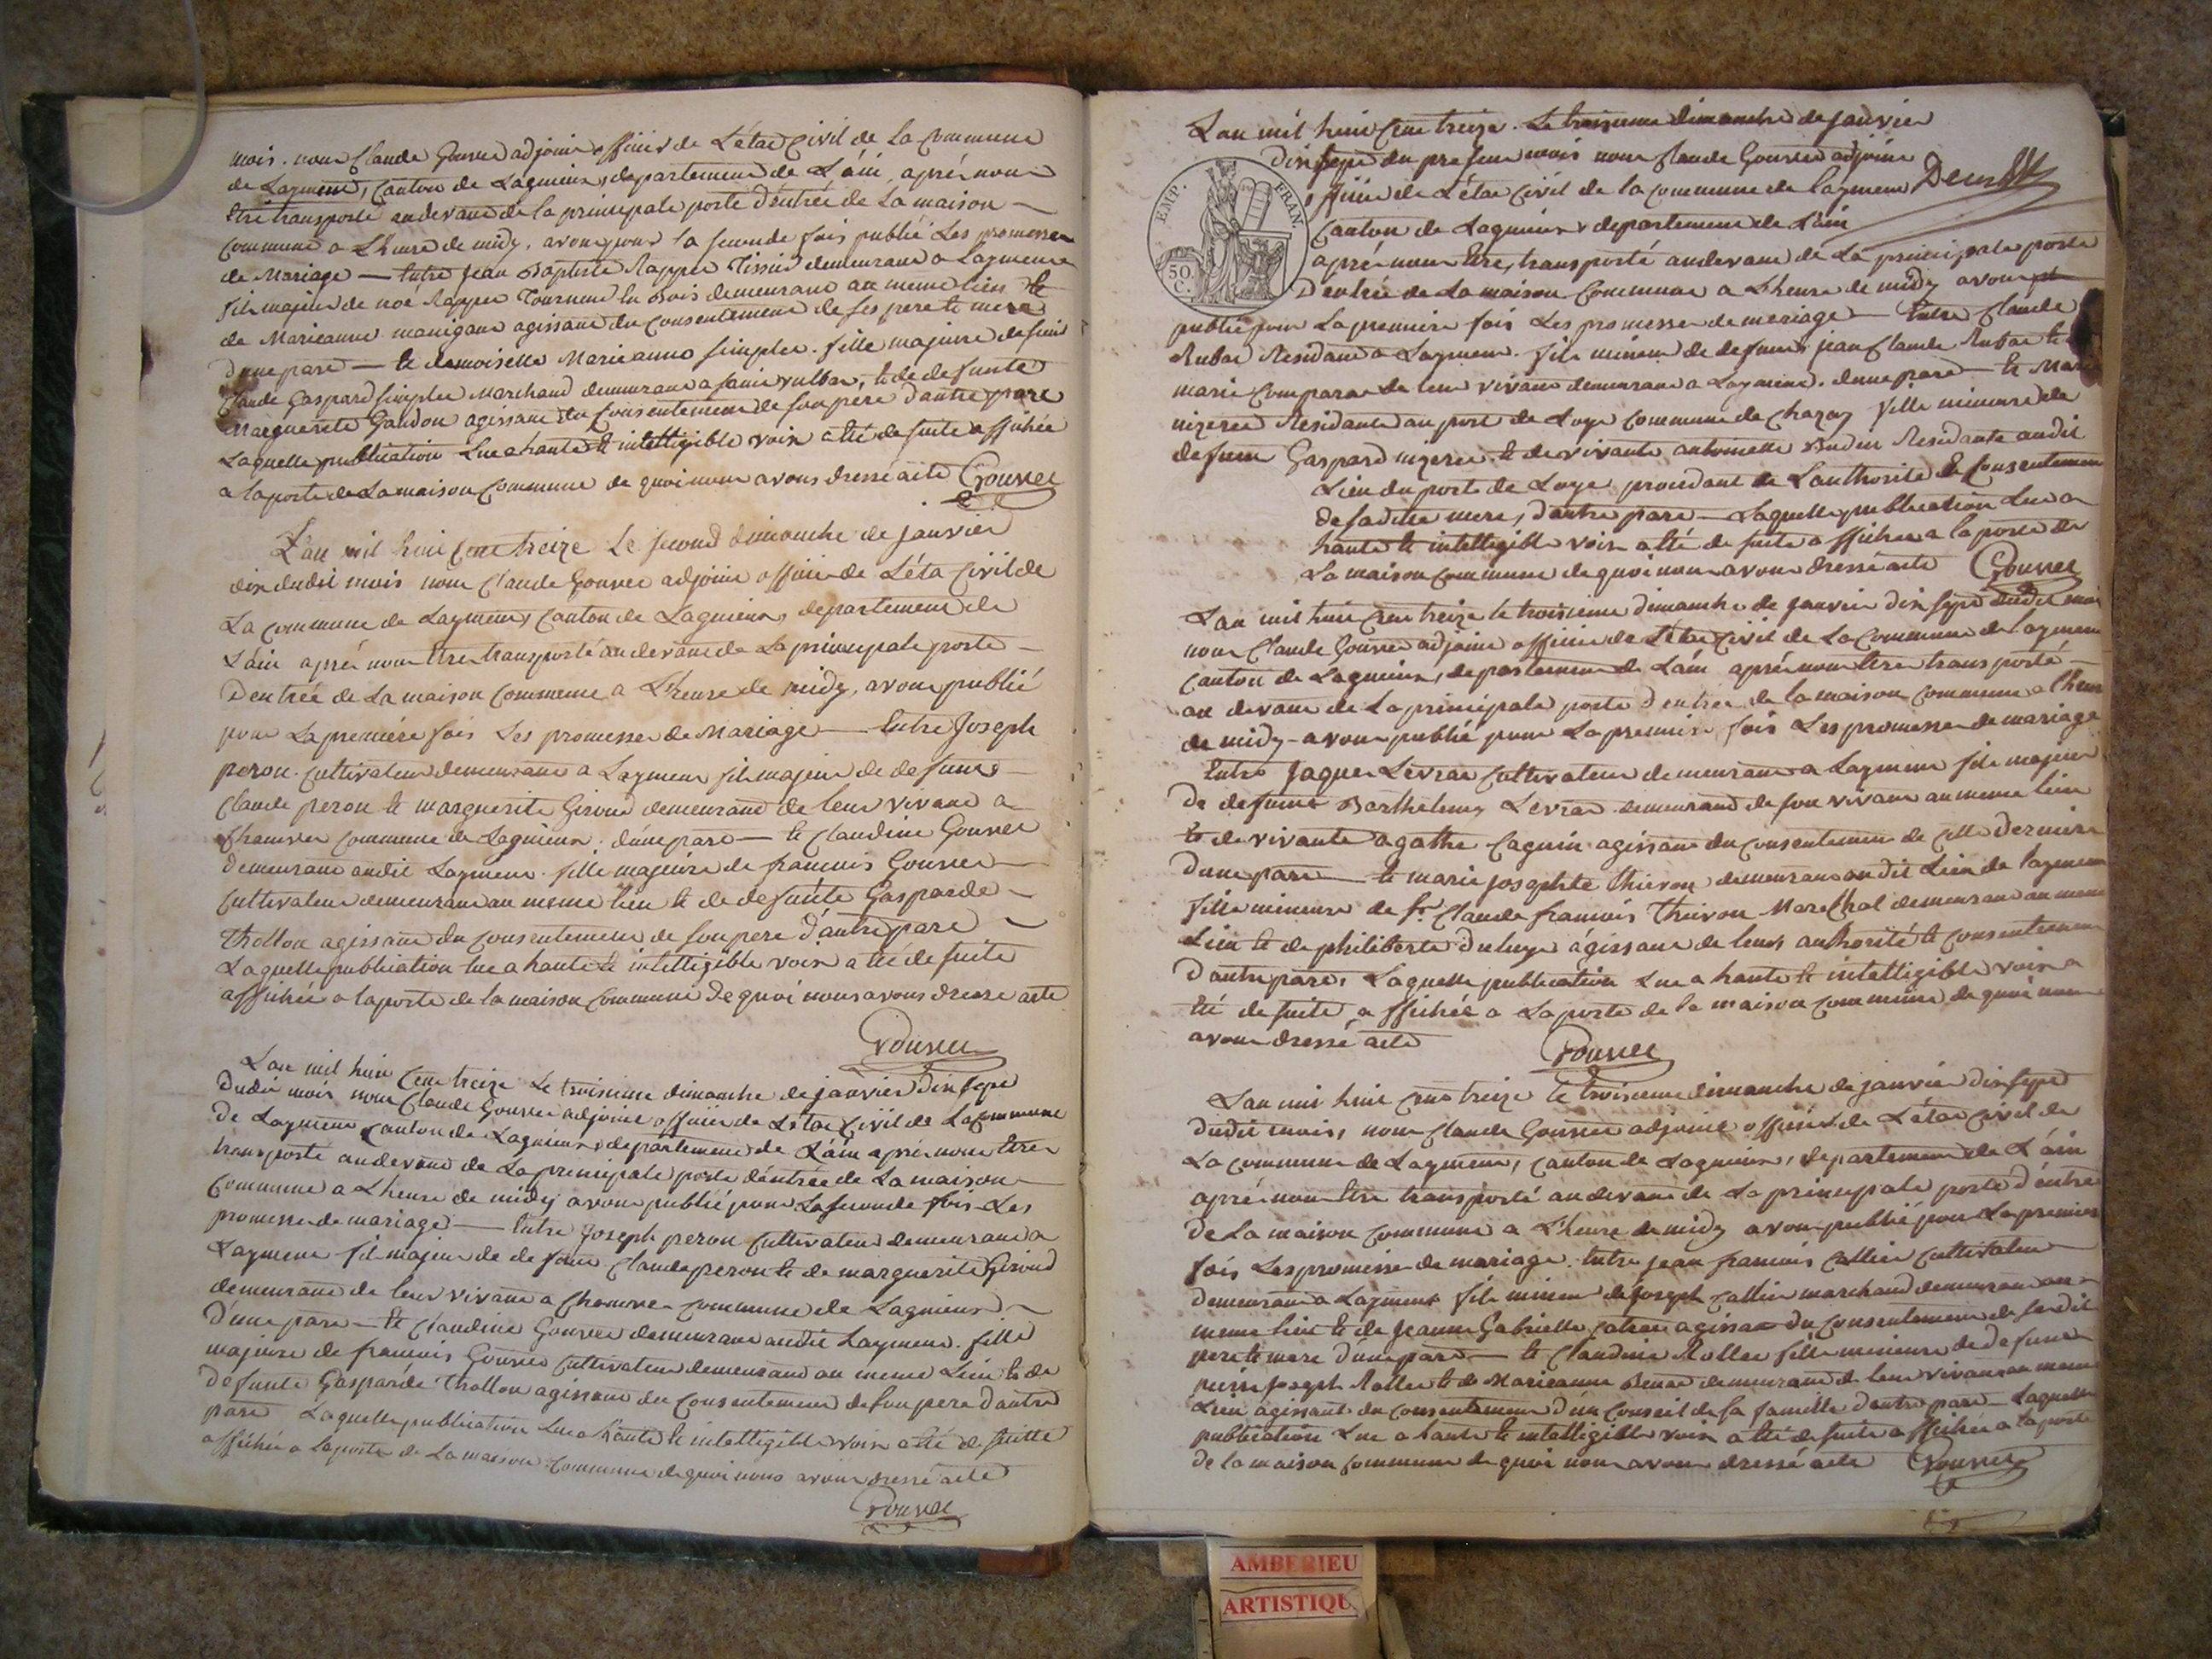 mois. nous Claude Gouvee adjoint officier de L'état Civil de la Commune
de Laymens, Canton de Lagnieux, departement de L'ain, aprés nous
être transporté audevant de la principale porte d'éntrée de La maison
Commune a L'heure de midy, avons pour la seconde fois publié Les promesses
de Mariage — Entre Jean Baptiste Rappet Tissier demeurant a Laymens
fils majeur de noé Rappet Tourneur En Bois demeurant au meme lieu Et
de Marieanne manigant agissant du Consentement de ses pere Et mere
d'une part — Et demoiselle Marieanne simplex. fille majeure de sieur
Claude Gaspard simplex Marchand demeurant a saint vulbas, Et de defunte
Marguerite Gaudon agissant du Consentement de son pere d'autre part
Laquelle publication Lue a haute Et intelligible voix a Eté de suite affichée
a la porte de La maison Commune de quoi nous avons dressé acte Gouvee
L'an mil huit Cent treize Le second dimanche de janvier
dix dudit mois nous Claude Gouvee adjoint officier de L'éta Civil de
La Commune de Laymens, Canton de Lagnieux, departement de
L'ain aprés nous Etre transporté au devant de La principale porte
D'entrée de La maison Commune a L'heure de midy, avons publié
pour La premiére fois Les promesses de Mariage — Entre Joseph
peron. Cultivateur demeurant a Laymens fils majeur de defunts
Claude peron Et marguerite Giroud demeurant de leur vivant a
Chanves Commune de Lagnieux. d'une part — Et Claudine Gouvee
demeurant audit Laymens. fille majeure de francois Gouvee
Cultivateur demeurant au meme lieu Et de defunte Gasparde
thollon agissant du Consentement de son pere d'autre part
Laquelle publication lue a haute Et intelligible voix a Eté de suite
affichée a la porte de la maison Commune de quoi nous avons dressé acte
Gouvee
L'an mil huit Cent treize Le troisieme dimanche de janvier dix sept
Dudit mois nous Claude Gouvee adjoint officier de L'état Civil de La Commune
De Laymens Canton de Lagnieux, departement de L'ain aprés nous Etre
transporté audevant de La principale porte d'éntrée de La maison
Commune a L'heure de midy avons publié pour La seconde fois Les
promesses de mariage — Entre Joseph peron Cultivateur demeurant a
Laymens fils majeur de defunt Claude peron Et de marguerite Giroud
demeurant de leur vivant a Chanves Commune de Lagnieux
D'une part — Et Claudine Gouvee demeurant audit Laymens. fille
majeure de francois Gouvee Cultivateur demeurant au meme Lieu Et de
Defunte Gasparde thollon agissant du Consentement de son pere d'autre
part Laquelle publication Lue a haute Et intelligible voix a Eté de suitte
affichée a La porte de La maison Commune de quoi nous avons dressé acte
Gouvee
L'an mil huit Cent treize. Le troisieme dimanche de janvier
Dix sept du present mois nous Claude Gouvee adjoint
officier de L'état Civil de la Commune de laymens
Canton de Lagnieux departement de L'ain
EMP. FRAN.
50 C.
aprés nous Etre, transporté audevant de La principale porte
D'entrée de La maison Commune a L'heure de midy avons
publié pour La premiere fois Les promesses de mariage — Entre Claude
Rubat Residant a Laymens. fils mineur de defunts jean Claude Rubat Et
marie Comparat de leur vivant demeurant a Laymens. d'une part — Et Marie
nizeret Residante au port de Loye Commune de Chazey fille mineure de
defunt Gaspard nizeret Et de vivante antoinette Budin Residante audit
Lieu du port de Loye procedant de L'authorité Et Consentement
de sadite mere, d'autre part — Laquelle publication Lue a
haute Et intelligible voix a Eté de suite affichée a la porte de
La maison commune de quoi nous avons dressé acte Gouvee
L'an mil huit Cent treize le troisieme dimanche de janvier dix sept dudit mois
nous Claude Gouvee adjoint officier de L'état Civil de La Commune de laymens
Canton de Lagnieux, departement de L'ain aprés nous Etre transporté
au devant de La principale porte d'entrée de la maison commune a l'heure
de midy avons publié pour La premiere fois Les promesses de mariage
Entre Jaques Levrat Cultivateur demeurant a Laymens fils majeur
De defunt Barthelemy Levrat demeurant de son vivant au meme lieu
Et de vivante agathe Caguin agissant du Consentement de cette derniere
D'une part — Et marie josephte thievon demeurant audit Lieu de laymens
fille mineure de Sr. Claude francois thievon Marechal demeurant au meme
Lieu Et de philiberte Duluye agissant de leurs authorité Et consentement
D'autre part, Laquelle publication Lue a haute Et intelligible voix a
Eté de suite affichée a La porte de la maison commune de quoi nous
avons dressé acte Gouvee
L'an mil huit Cent treize Le troisieme dimanche de janvier dix sept
Dudit mois, nous Claude Gouvee adjoint officier de L'état Civil de
La Commune de Laymens, Canton de Lagnieux, departement de L'ain
aprés nous Etre transporté audevant de La principale porte d'éntrée
De La maison Commune a L'heure de midy avons publié pour La premiere
fois Les promesses de mariage. Entre jean francois Collier Cultivateur
Demeurant a Laymens fils mineur de joseph Collier marchand demeurant au
meme lieu Et de Jeanne Gabrielle agissant du Consentement de sesdit
pere Et mere d'une part — Et Claudine Rollet fille mineure de defunt
pierre joseph Rollet Et de Marieanne Benat demeurant de leur vivant au meme
Lieu agissant du consentement d'un Conseil de sa famille d'autre part — Laquelle
publication Lue a haute Et intelligible voix a Eté de suite affichée a la porte
de la maison Commune de quoi nous avons dressé acte Gouvee
AMBERIEU
ARTISTIQU